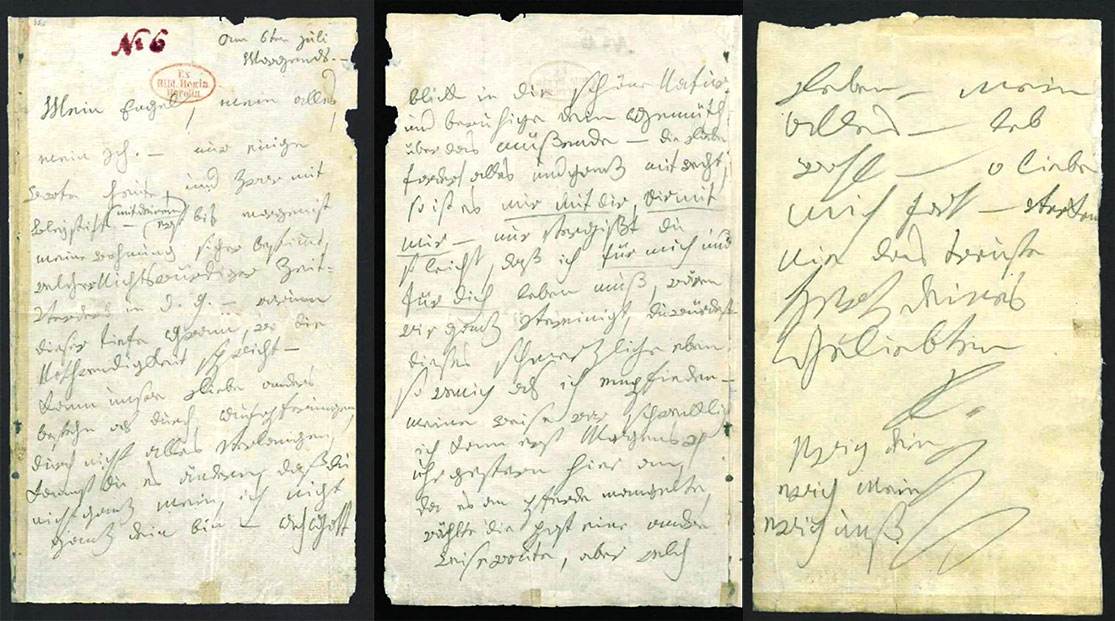 No 6
am 6ten Juli
Morgends. –
Ex
Bibl. Regia
Berolin.
Mein Engel, mein alles,
mein Ich. – nur einige
Worte heute, und zwar mit
Bleystift – (mit deinem) erst bis morgen ist
meine Wohnung sicher bestimmt,
welcher Nichtswürdiger Zeit-
verderb in d. g. – warum
dieser tiefe Gram, wo die
Nothwendigkeit spricht –
Kann unsre Liebe anders
bestehn als durch Aufopferungen,
durch nicht alles verlangen,
kannst du es ändern, daß du
nicht ganz mein, ich nicht
ganz dein bin – Ach Gott
blick in die schöne Natur
und beruhige dein Gemüth
über das müßende – die Liebe
fordert alles und ganz mit recht,
so ist es mir mit dir, dir mit
mir – nur vergißt du
so leicht, daß ich für mich und
für dich leben muß, wären
wir ganz vereinigt, du würdest
dieses schmerzliche eben
so wenig als ich empfinden –
meine Reise war schrecklich
ich kam erst Morgens 4
uhr gestern hier an,
da es an Pferde mangelte,
wählte die Post eine andre
Reiseroute, aber welch
Leben – mein
Alles – leb
wohl – o liebe
mich fort – verken
nie das treuste
Herz deines
Geliebten
L.
ewig dein
ewig mein
ewig unß